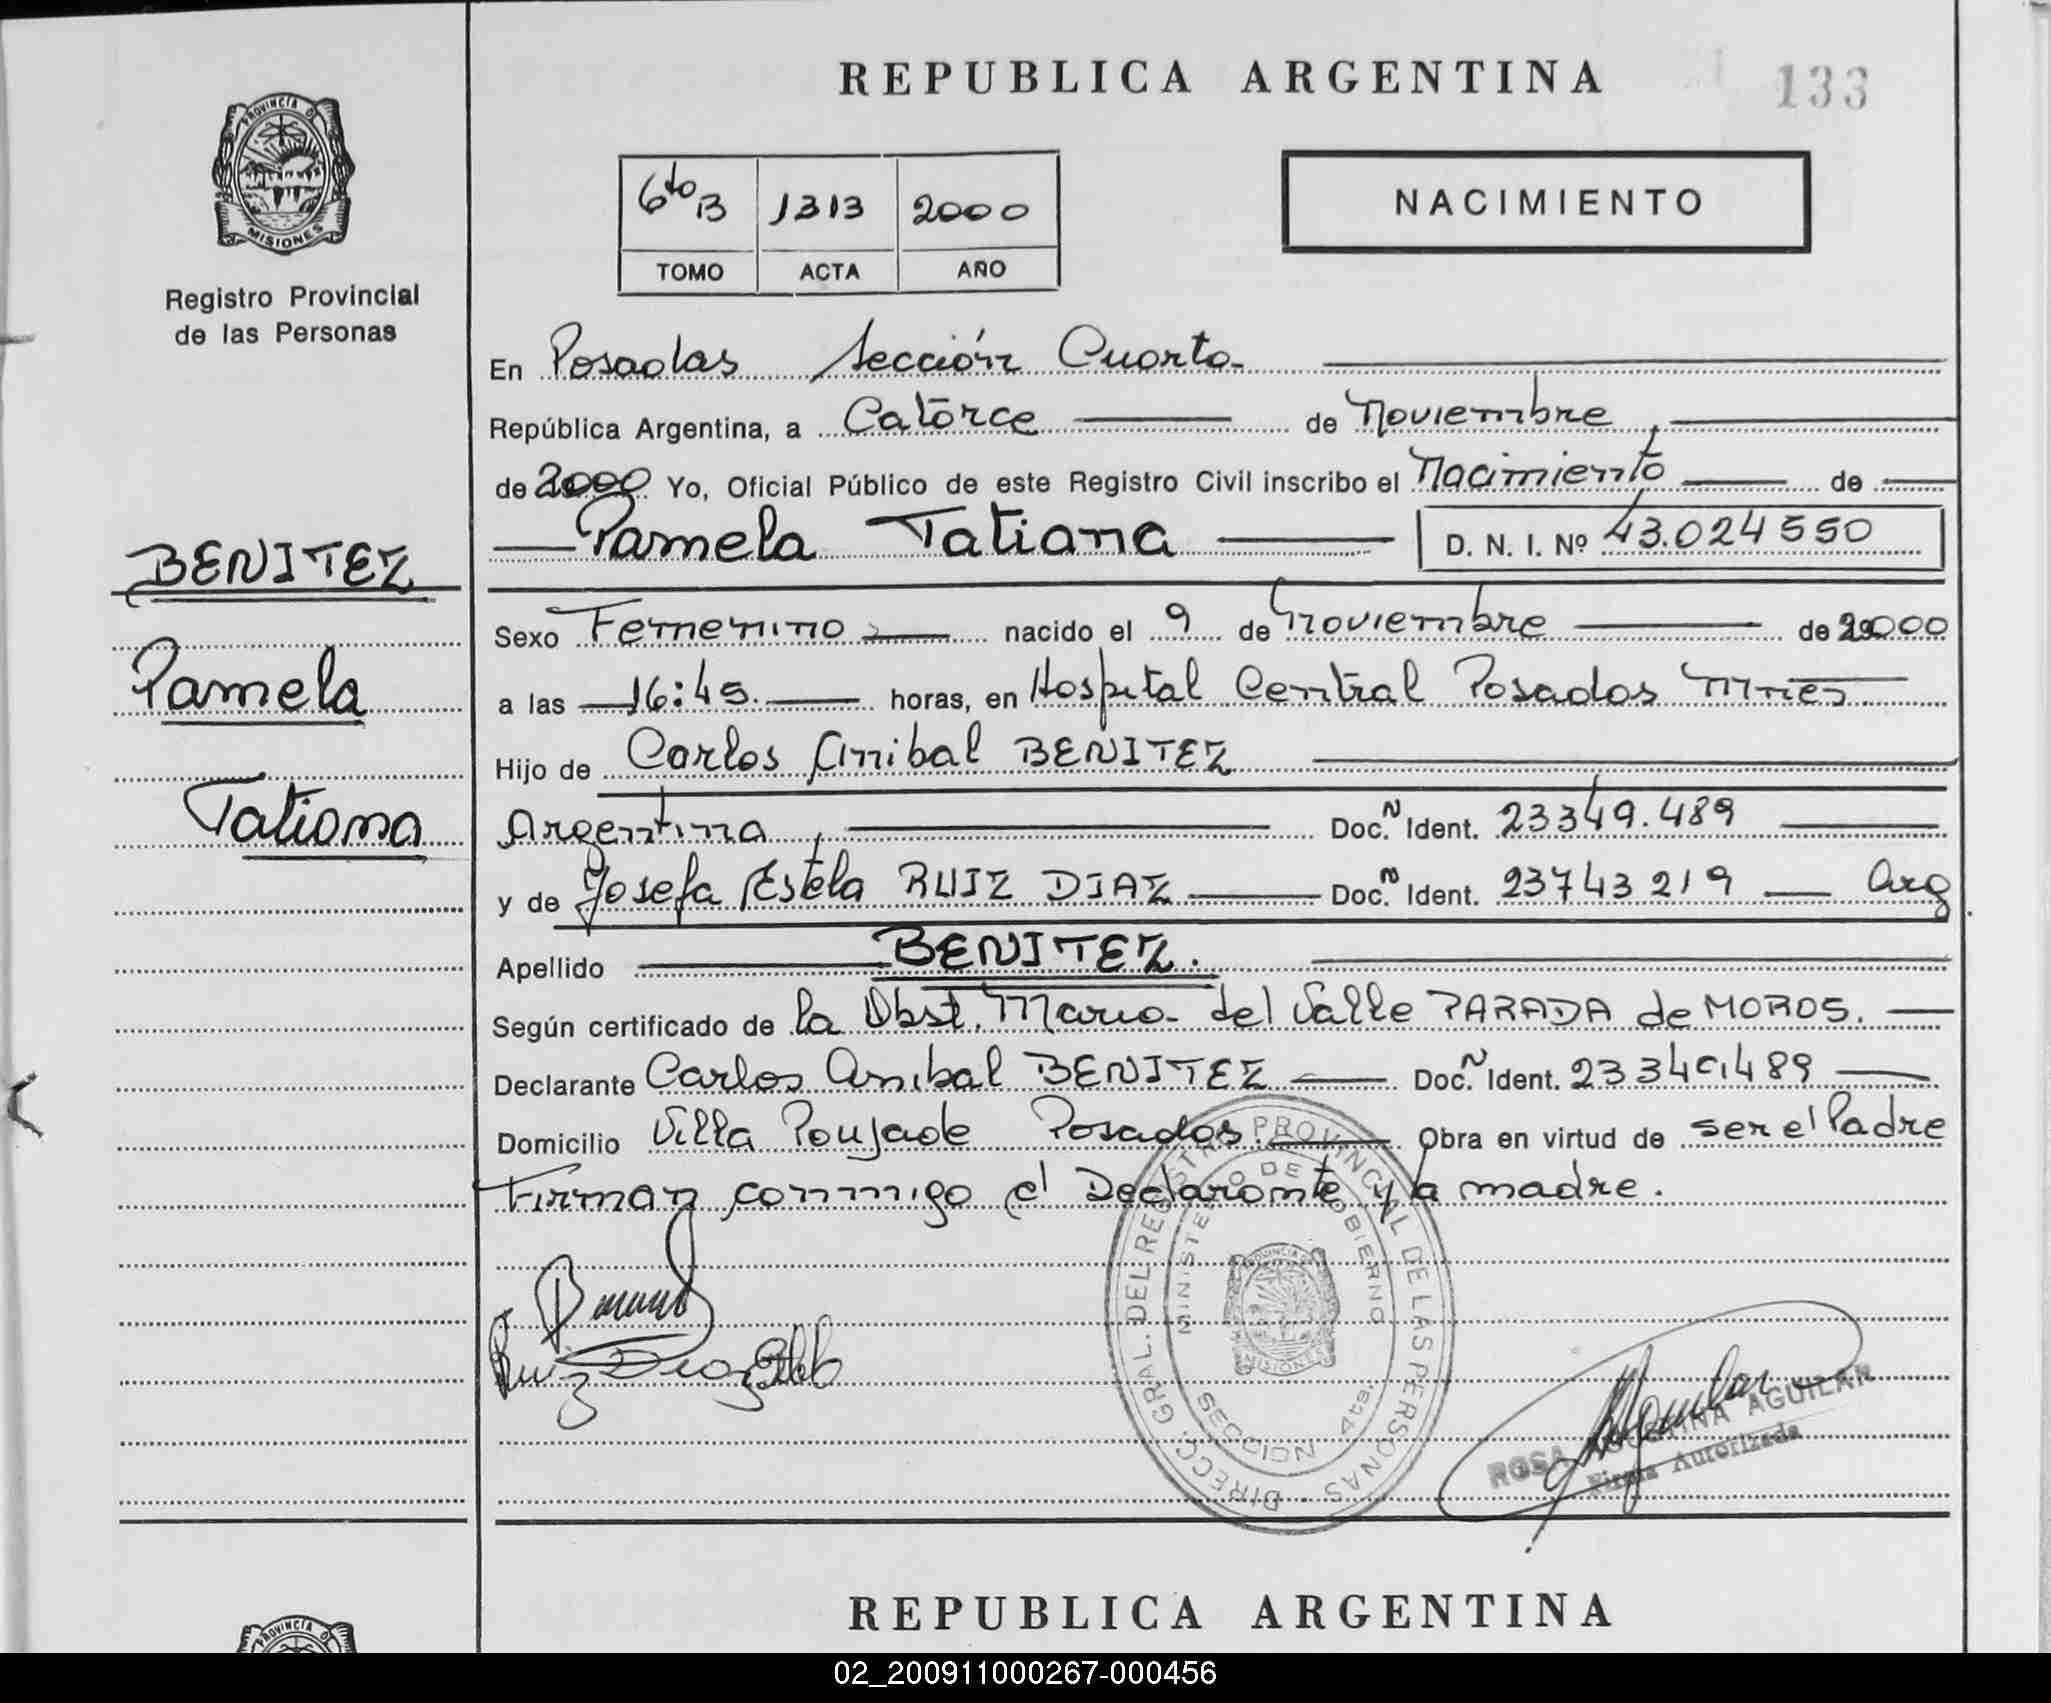 REPUBLICA ARGENTINA
133
PROVINCIA D
MISIONES
Registro Provincial
de las Personas
6to B 1313 2000
TOMO ACTA AÑO
NACIMIENTO
En Posadas Sección Cuarta
República Argentina, a Catorce de Noviembre
de 2000 Yo, Oficial Público de este Registro Civil inscribo el Nacimiento de
Pamela Tatiana D. N. I. Nº 43.024550
BENITEZ
Pamela
Tatiana
Sexo Femenino nacido el 9 de Noviembre de 2000
a las 16:45 horas, en Hospital Central Posadas Mnes.
Hijo de Carlos Anibal BENITEZ
Argentina Doc. N Ident. 23349.489
y de Josefa Estela RUIZ DIAZ Doc. N Ident. 23743219 Arg
Apellido BENITEZ.
Según certificado de la Obst. Maria del Valle PARADA de MOROS.
Declarante Carlos Anibal BENITEZ Doc. N Ident. 23349.489
Domicilio Villa Poujade Posadas Obra en virtud de ser el Padre
Firman conmigo el Declarante y la madre.
DIRECC. GRAL. DEL REGISTRO PROVINCIAL DE LAS PERSONAS
MINISTERIO DE GOBIERNO
PROVINCIA
MISIONES
SECCION 4ta.
Ruiz Diaz
Aguilar
ROSA AGUSTINA AGUILAR
Firma Autorizada
REPUBLICA ARGENTINA
PROVINCIA D
02_200911000267-000456